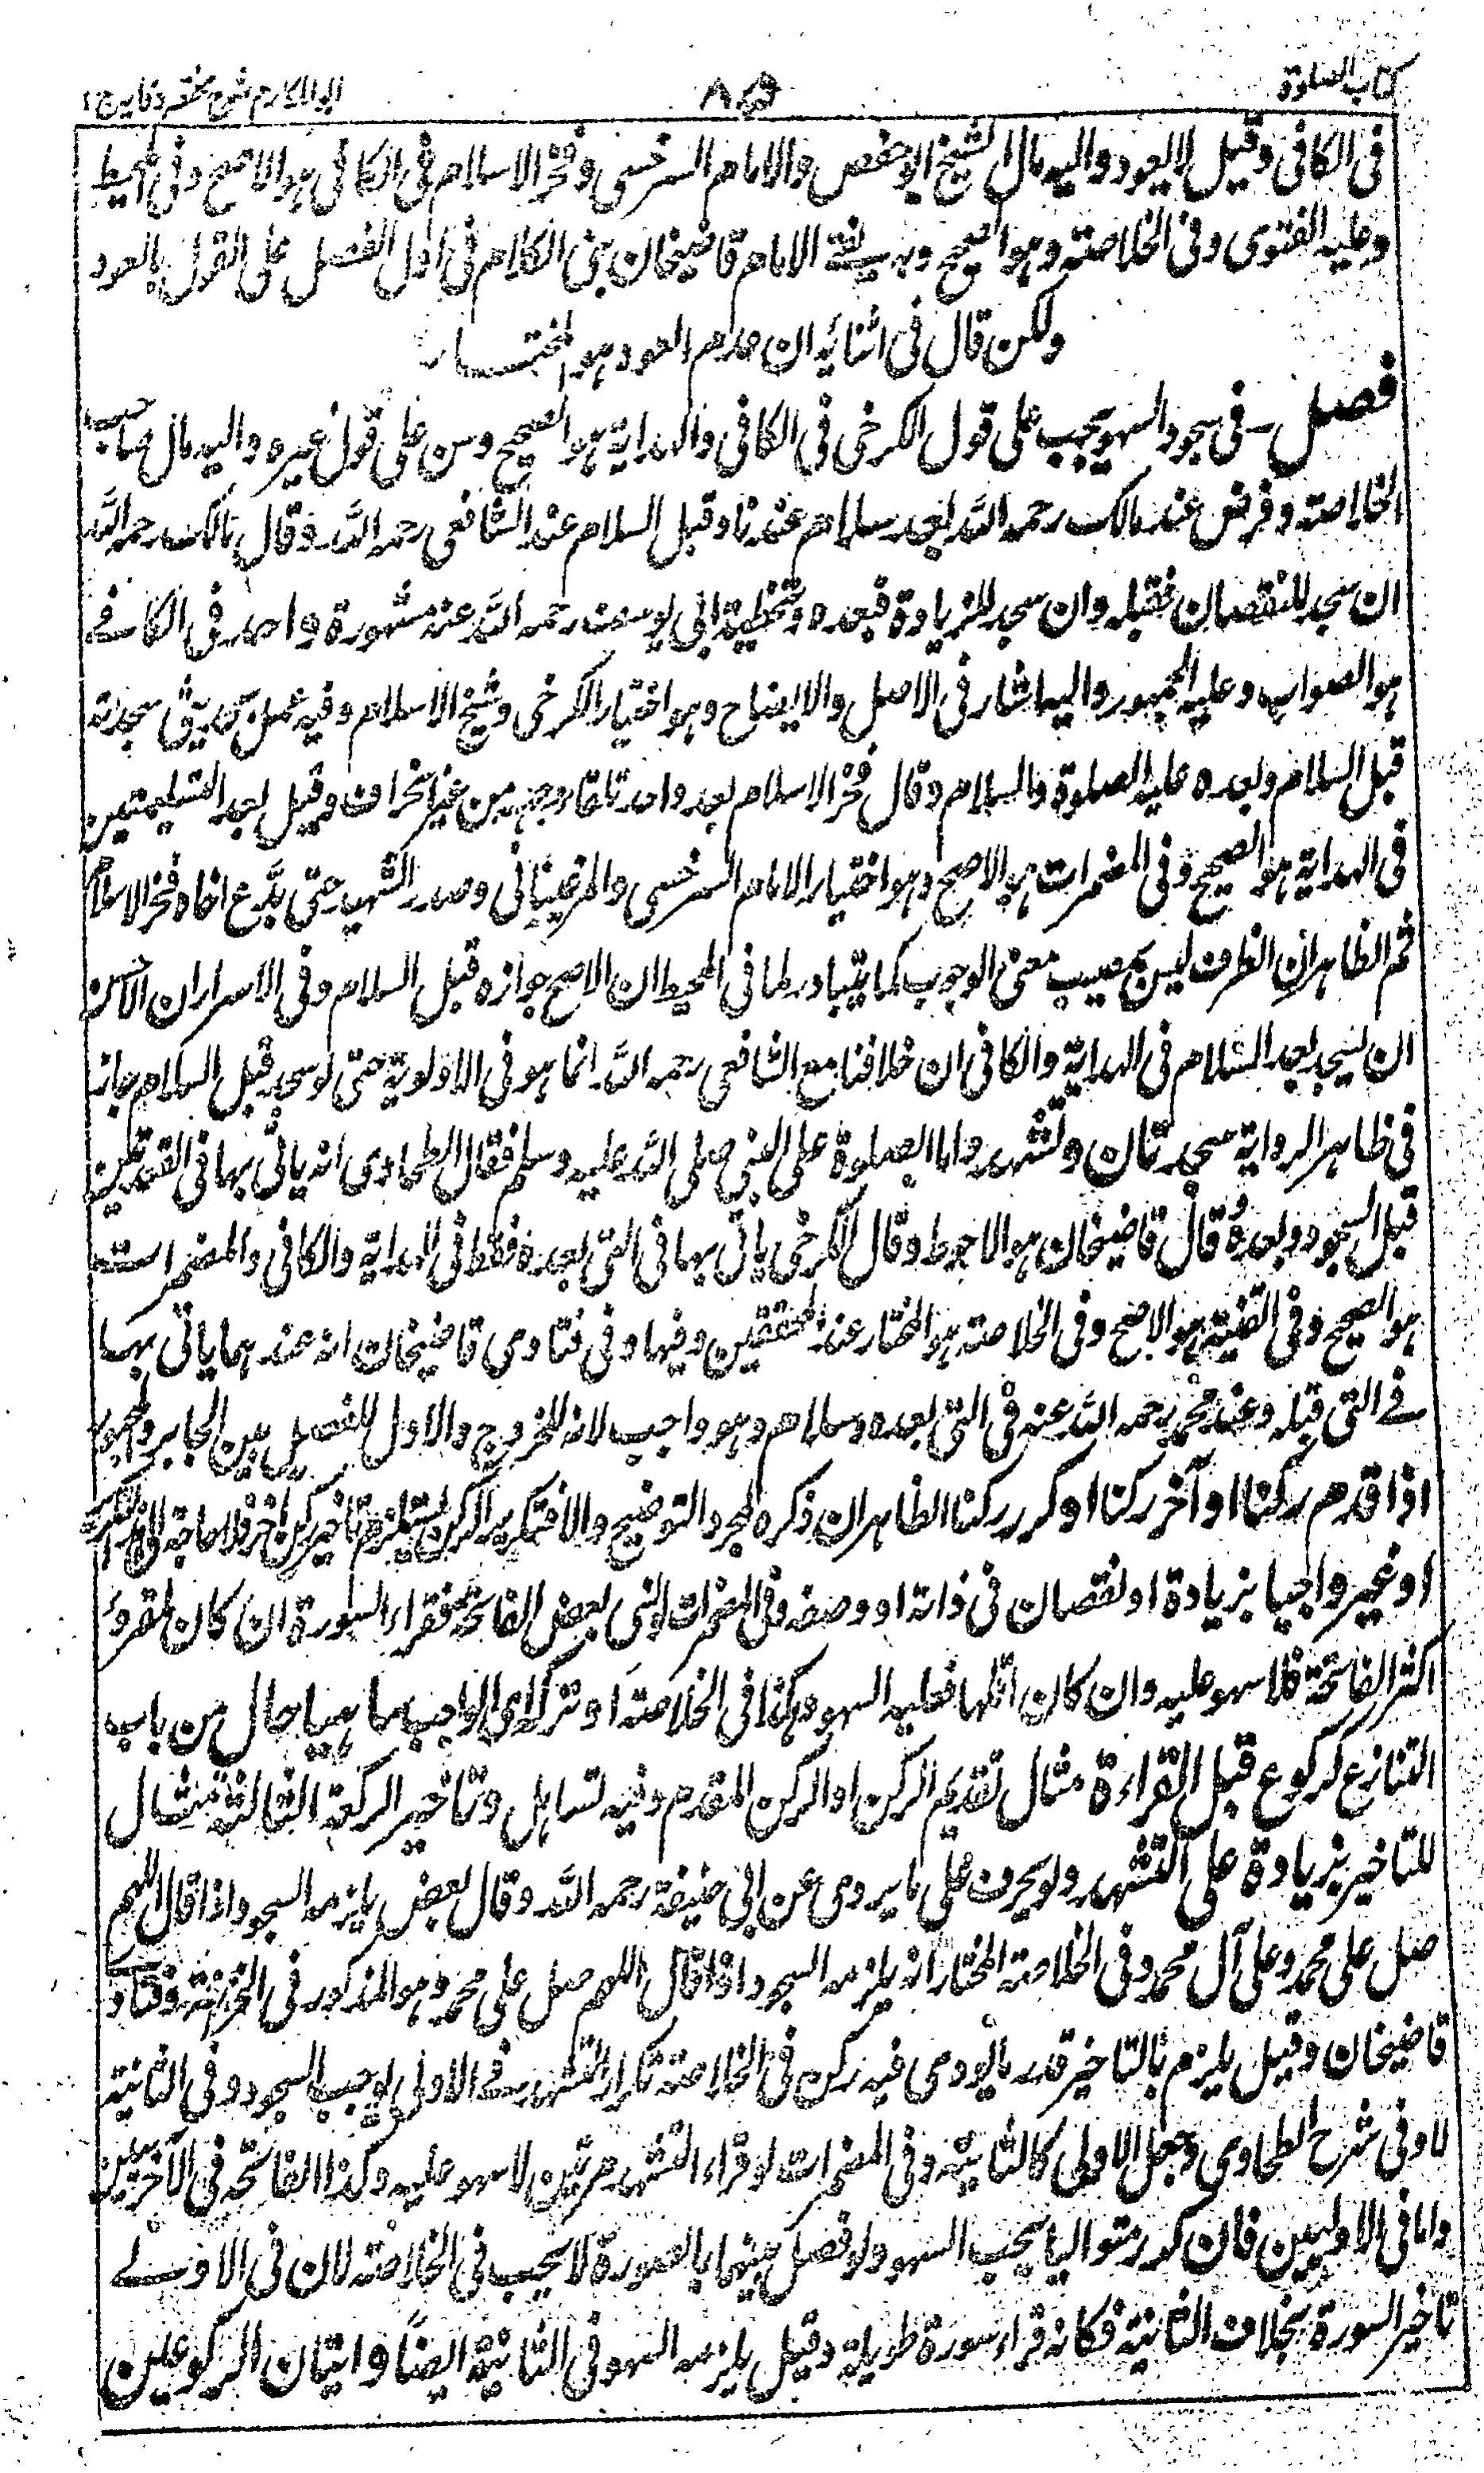 كتاب الصلوة
٨٥
ابو المكارم شرح مختصر وقايه ج ١
فى الكافى وقيل لا يعود واليه مال الشيخ ابو حفص والامام السرخسى وفخر الاسلام فى الكافى هو الاصح وفى المحيط
وعليه الفتوى وفى الخلاصة وهو الصحيح وبه يفتى الامام قاضيخان بنى الكلام فى اول الفصل على القول بالعود
ولكن قال فى اثنائه ان عدم العود هو المختار
فصل فى سجود السهو يجب على قول الكرخى فى الكافى والهداية هو الصحيح وسن على قول غيره واليه مال صاحب
الخلاصة وفرض عند مالك رحمه الله بعد سلام عندنا وقبل السلام عند الشافعى رحمه الله وقال مالك رحمه الله
ان سجد للنقصان فقبله وان سجد للزيادة فبعده وتخطية ابى يوسف رحمه الله عنه مشهورة واحد فى الكافى
هو الصواب وعليه الجمهور واليه اشار فى الاصل والايضاح وهو اختيار الكرخى وشيخ الاسلام وفيه عمل سجدته
قبل السلام وبعده عليه الصلوة والسلام وقال فخر الاسلام بعد واحد تلقاء وجهه من غير انحراف وقيل بعد التسليمتين
فى الهداية هو الصحيح وفى المضمرات هو الاصح وهو اختيار الامام السرخسى والمرغينانى وصدر الشهيد حتى بدّع اخاه فخر الاسلام
ثم الظاهر ان الظرف ليس بمصيب معنى الوجوب كما يتبادر لما فى المحيط ان الاصح جوازه قبل السلام وفى الاسرار ان الاحسن
ان يسجد بعد السلام فى الهداية والكافى ان خلافنا مع الشافعى رحمه الله انما هو فى الاولوية حتى لو سجد قبل السلام جاز
فى ظاهر الرواية سجدتان وتشهد واما الصلوة على النبى صلى الله عليه وسلم فقال الطحاوى انه ياتى بها فى القعدتين
قبل السجود وبعده قال قاضيخان هو الاحوط وقال الكرخى ياتى بها فى التى بعده فقط فى الهداية والكافى والمضمرات
هو الصحيح وفى القنية هو الاصح وفى الخلاصة هو المختار عند المحققين وفيها وفى فتاوى قاضيخان انه عندهما ياتى بها
فى التى قبله وعند محمد رحمه الله عنه فى التى بعده وسلام وهو واجب لانه للخروج والاول للفصل بين الجابر والمجبور
اذا قدم ركنا او آخر ركنا او كرر ركنا الظاهر ان ذكره لمجرد التوضيح والا فتكرير الركن يستلزم تاخير ركن آخر فلا حاجة الى
او غير واجبا بزيادة او نقصان فى ذاته او وصفه وفى المضمرات لو نسى بعض الفاتحة فقراء السورة ان كان المقروء
اكثر الفاتحة فلا سهو عليه وان كان اقلها فعليه السهو وهكذا فى الخلاصة او تركه اى الواجب ساهيا حال من باب
التنازع كركوع قبل القراءة مثال تقديم الركن او الركن المقدم وفيه تساهل وتاخير الركعة الثالثة مثال
للتاخير بزيادة على التشهد ولو بحرف على ما يروى عن ابى حنيفة رحمه الله وقال بعض يلزمه السجود اذا قال اللهم
صل على محمد وعلى آل محمد وفى الخلاصة المختار انه يلزمه السجود اذا قال اللهم صل على محمد وهو المذكور فى الخزانة وفتاوى
قاضيخان وقيل يلزم بالتاخير قدر ما يودى فيه ركن فى الخلاصة تكرار التشهد فى الاولى يوجب السجود وفى الثانية
لا وفى شرح الطحاوى وجعل الاولى كالثانية وفى المضمرات لو قراء التشهد مرتين لا سهو عليه وكذا الفاتحة فى الآخريين
واما فى الاوليين فان كرر متواليا يجب السهو ولو فصل بينهما بالسورة لا يجب فى الخلاصة لان فى الاولى
تاخير السورة بخلاف الثانية فكانه قراء سورة طويلة وقيل يلزمه السهو فى الثانية ايضا واتيان الركوعين